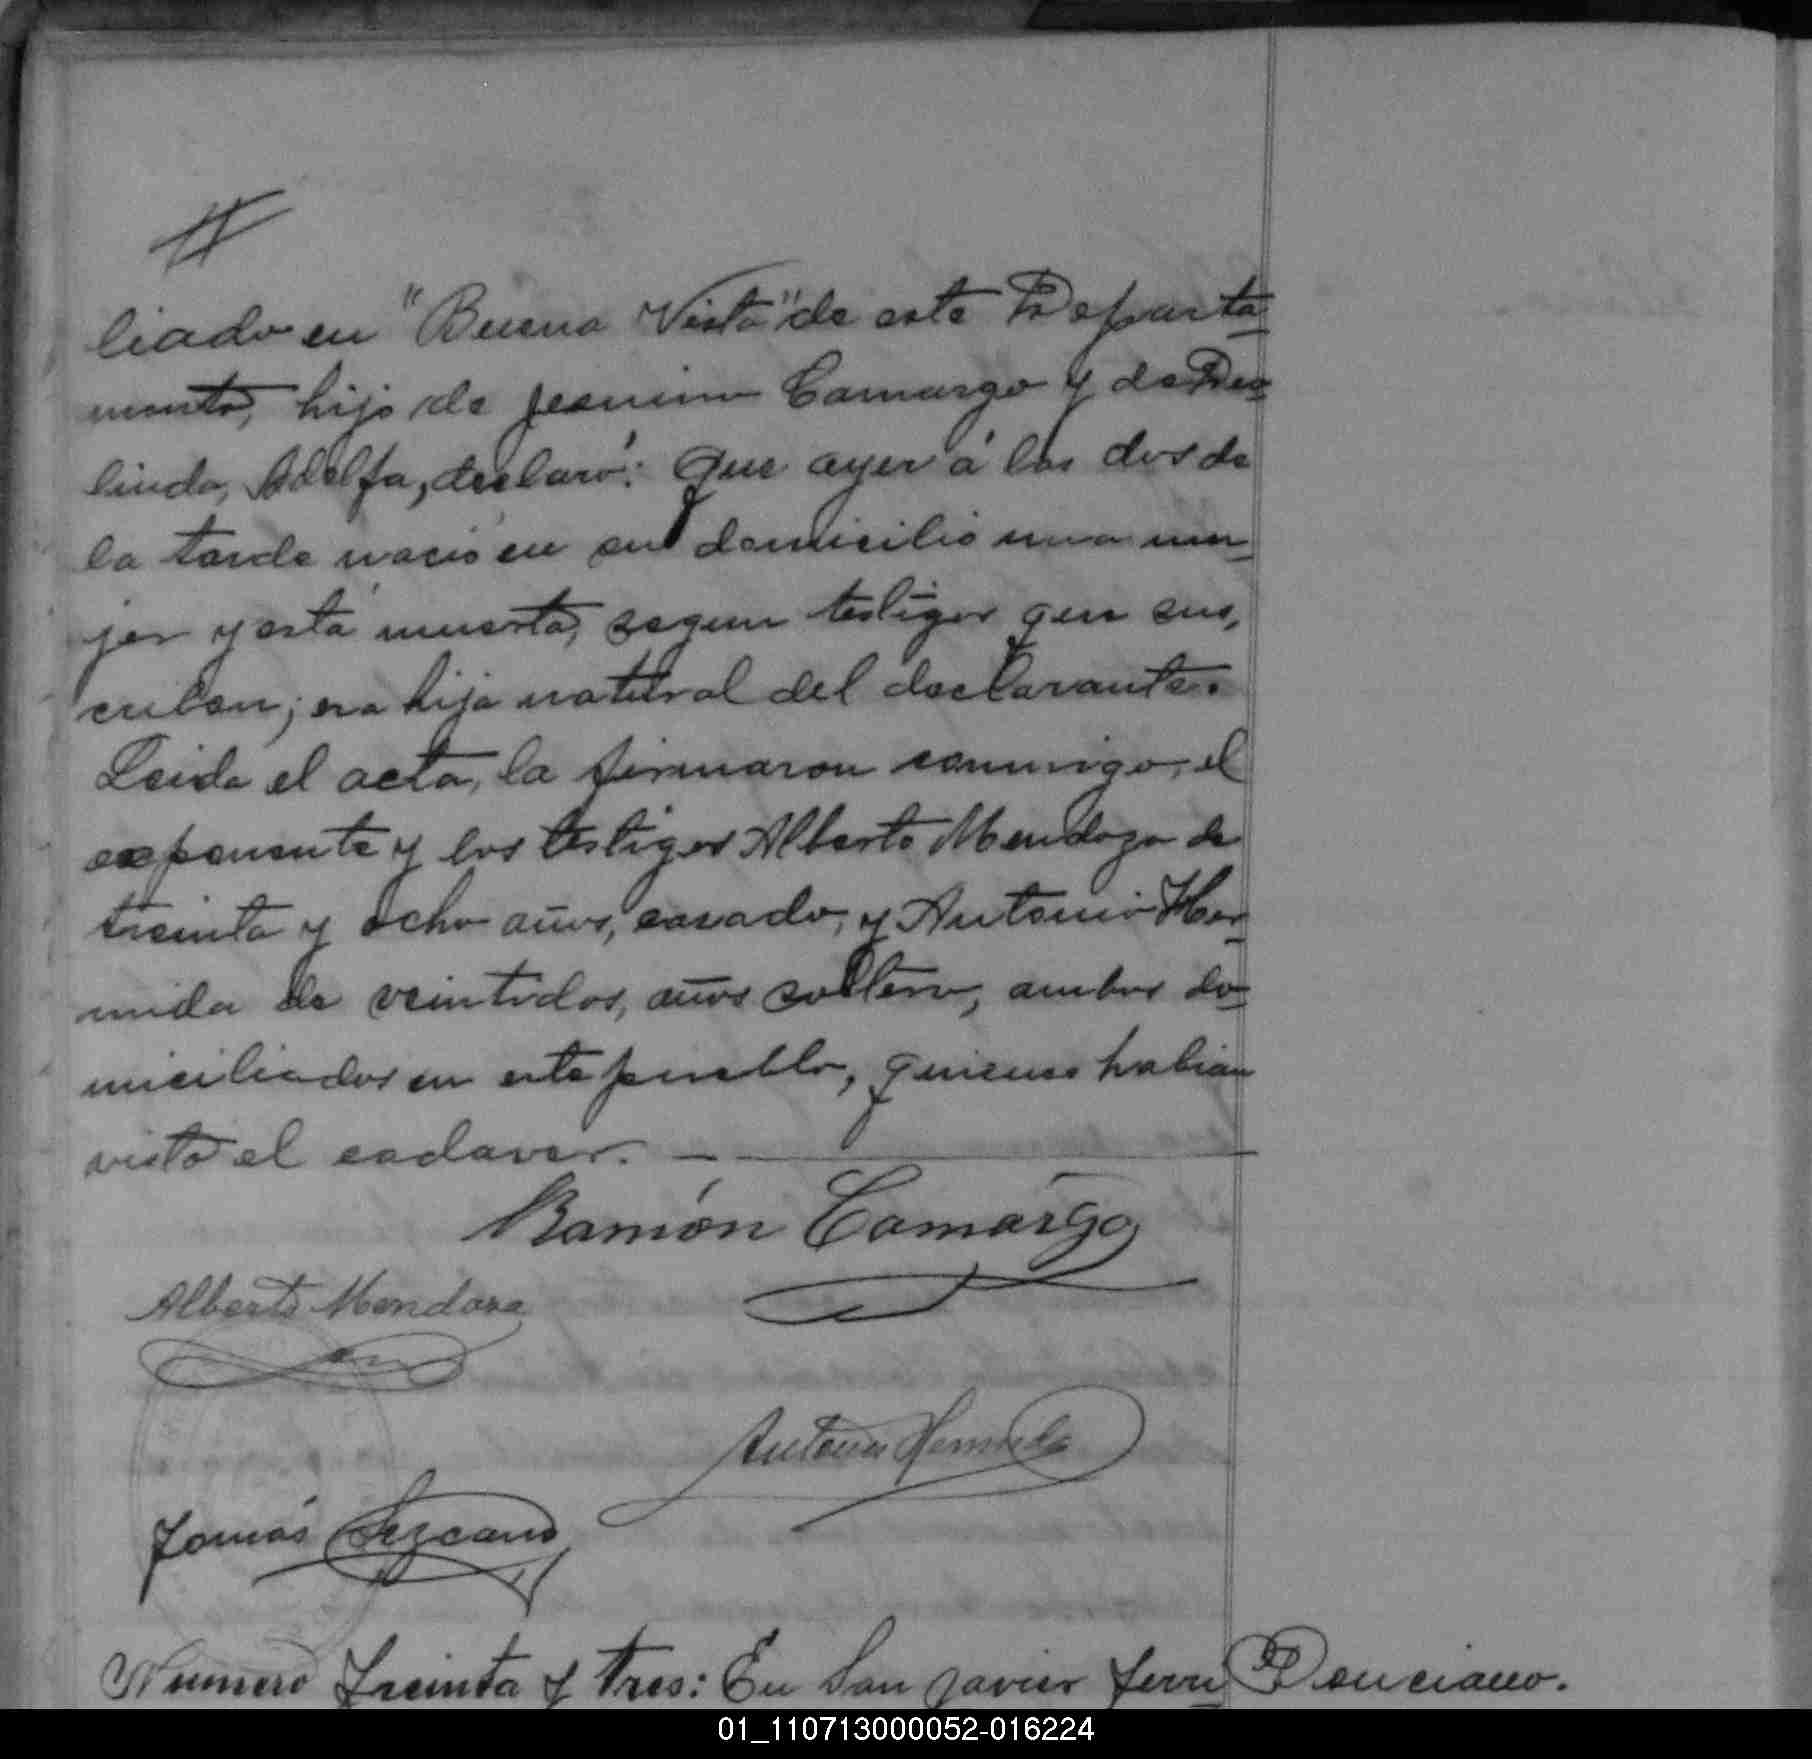 liado en "Buena Vista" de este Departa-
mento, hijo de Jesnino Camargo y de Deo-
linda, Adelfa, declaró: Que ayer á las dos de
la tarde nació en su domicilio una mu-
jer y está muerta, segun testigos que sus,
criben; era hija natural del declarante.
Leida el acta, la firmaron conmigo, el
exponente y los testigos Alberto Mendoza de
treinta y ocho años, casado, y Antonio Her-
mida de veintidos, años soltero, ambos do-
miciliados en este pueblo, quienes habian
visto el cadaver. —
Ramón Camargo
Alberto Mendoza
Antonio Hermida
Tomás Lezcano
Numero Treinta y tres: En San Javier Terri-
Ponciano.
01_110713000052-016224